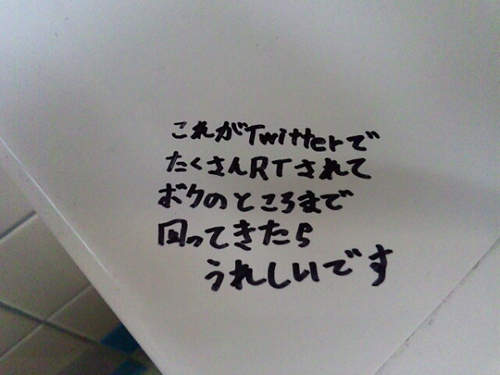 これがTwitterで
たくさんRTされて
ボクのところまで
回ってきたら
うれしいです